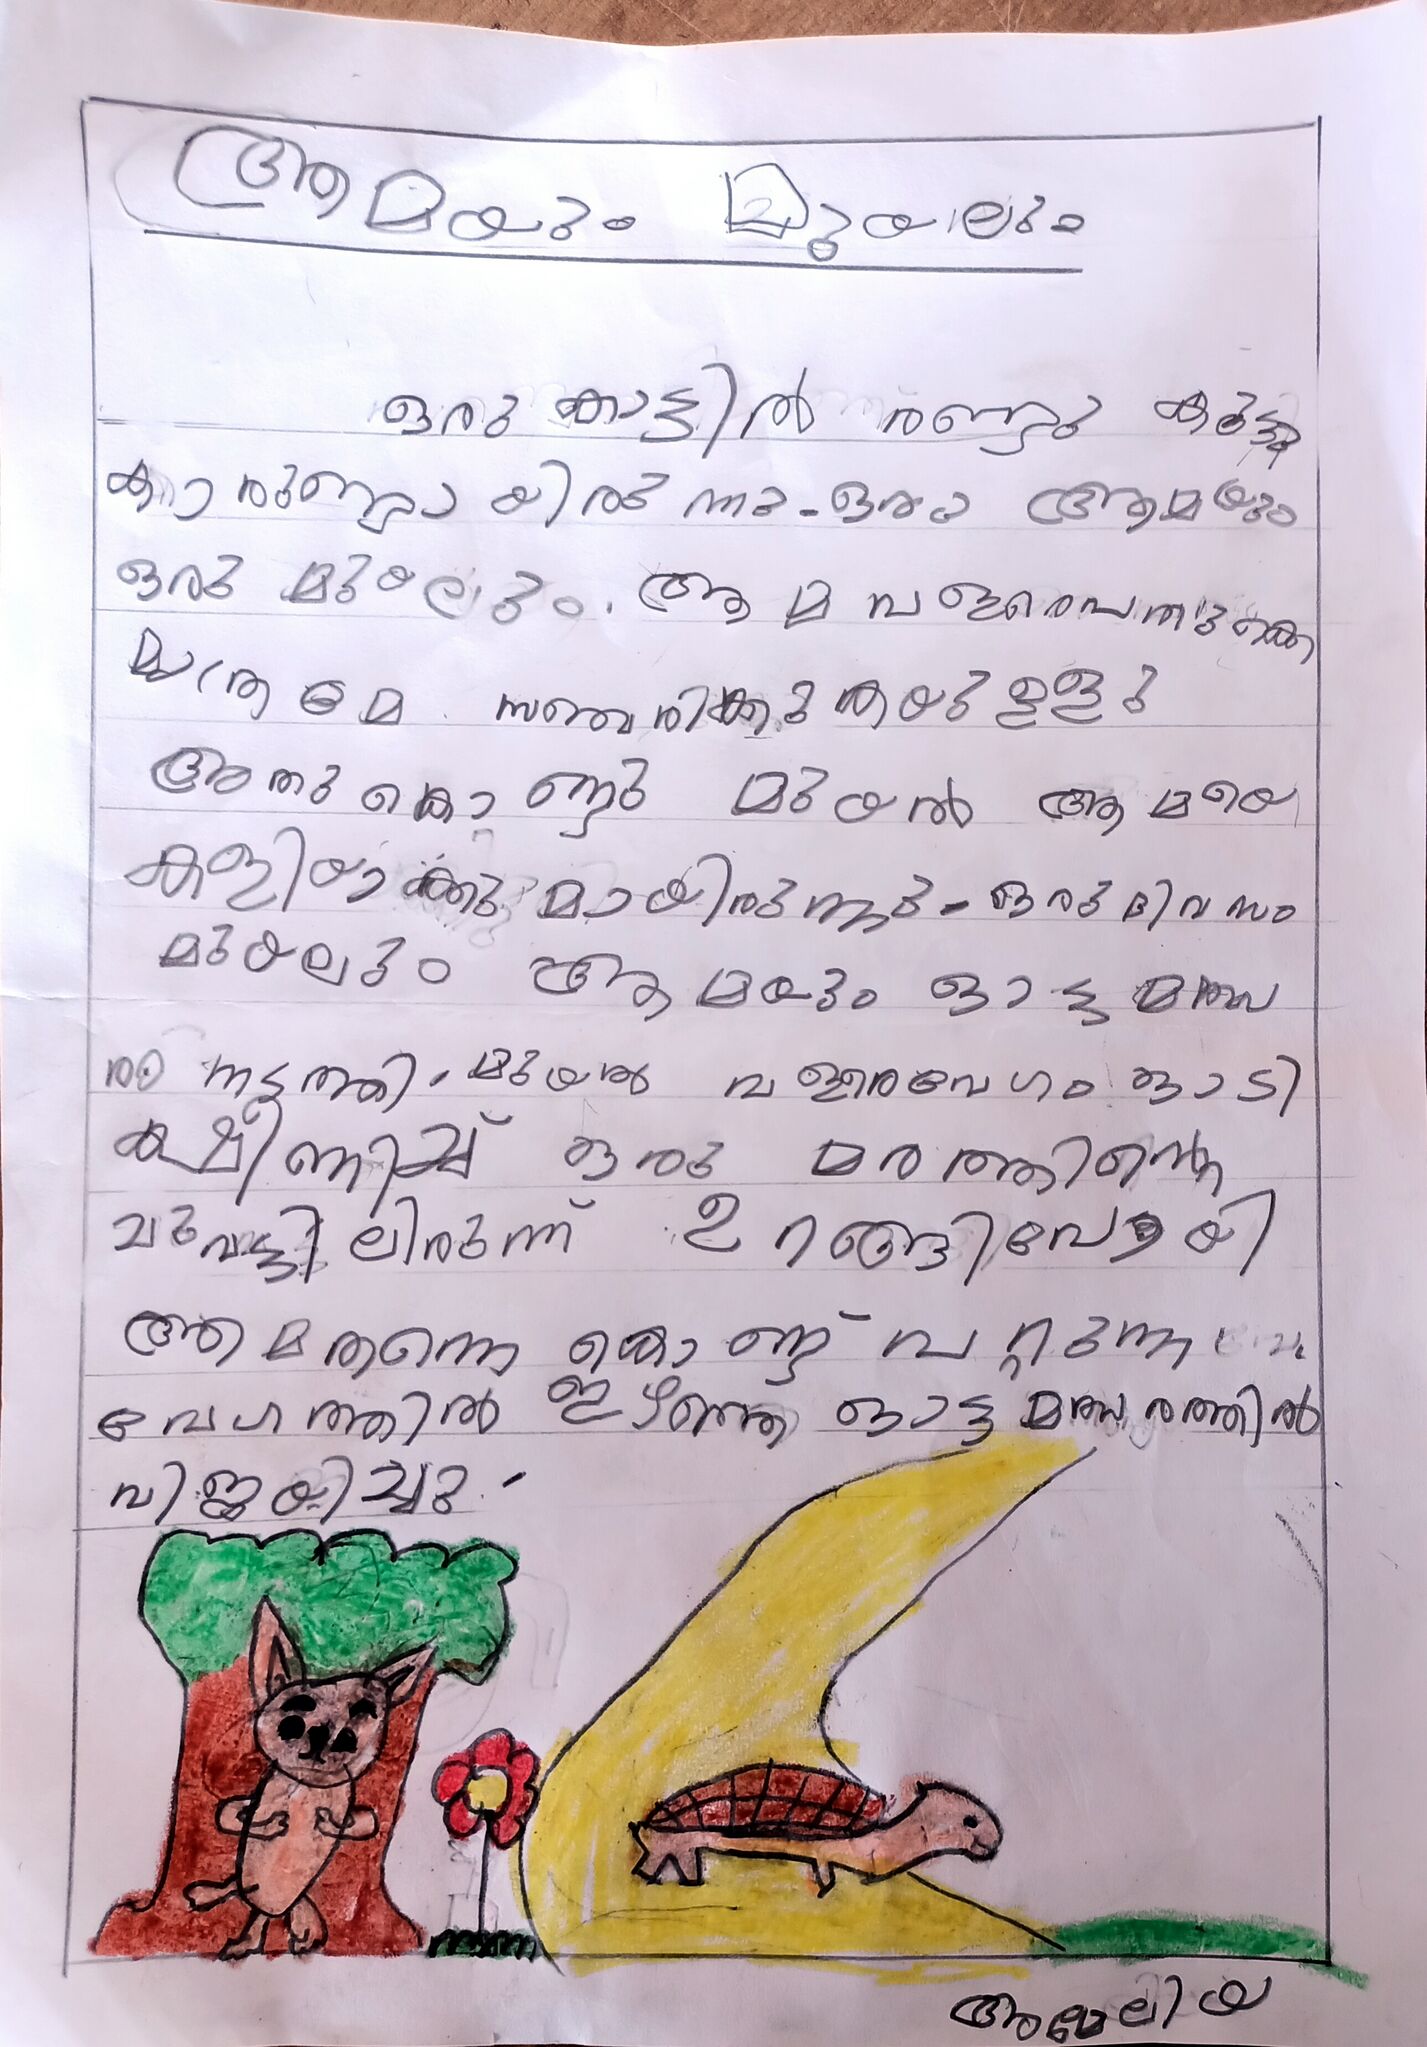 ആമയും മുയലും
ഒരു കാട്ടിൽ രണ്ടു കൂട്ടു
കാരുണ്ടായിരുന്നു. ഒരു ആമയും
ഒരു മുയലും. ആമ വളരെ പതുക്കെ
മാത്രമേ സഞ്ചരിക്കുകയുള്ളു
അതുകൊണ്ടു മുയൽ ആമയെ
കളിയാക്കുമായിരുന്നു. ഒരു ദിവസം
മുയലും ആമയും ഓട്ട മത്സ
രം നടത്തി. മുയൽ വളരെവേഗം ഓടി
ക്ഷീണിച്ച് ഒരു മരത്തിന്റെ
ചുവട്ടിലിരുന്ന് ഉറങ്ങിപോയി
ആമ തന്നെ കൊണ്ട് പറ്റുന്ന
വേഗത്തിൽ ഇഴഞ്ഞ് ഓട്ട മത്സരത്തിൽ
വിജയിച്ചു.
അമേലിയ